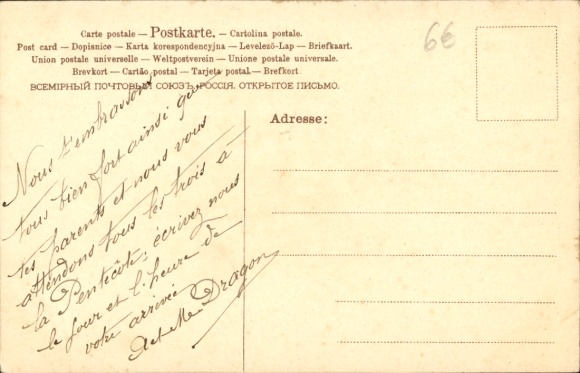 Carte postale — Postkarte. — Cartolina postale.
Post card — Dopisnice — Karta korespondencyjna — Levelező-Lap — Briefkaart.
Union postale universelle — Weltpostverein — Unione postale universale.
Brevkort — Cartão postal — Tarjeta postal — Brefkort
ВСЕМІРНЫЙ ПОЧТОВЫЙ СОЮЗЪ, РОССІЯ. ОТКРЫТОЕ ПИСЬМО.
6€
Adresse:
Nous t'embrassons
tous bien fort ainsi que
tes parents et nous vous
attendons tous les trois à
la Pentecôte, écrivez nous
le jour et l'heure de
votre arrivée
A et M Dragon